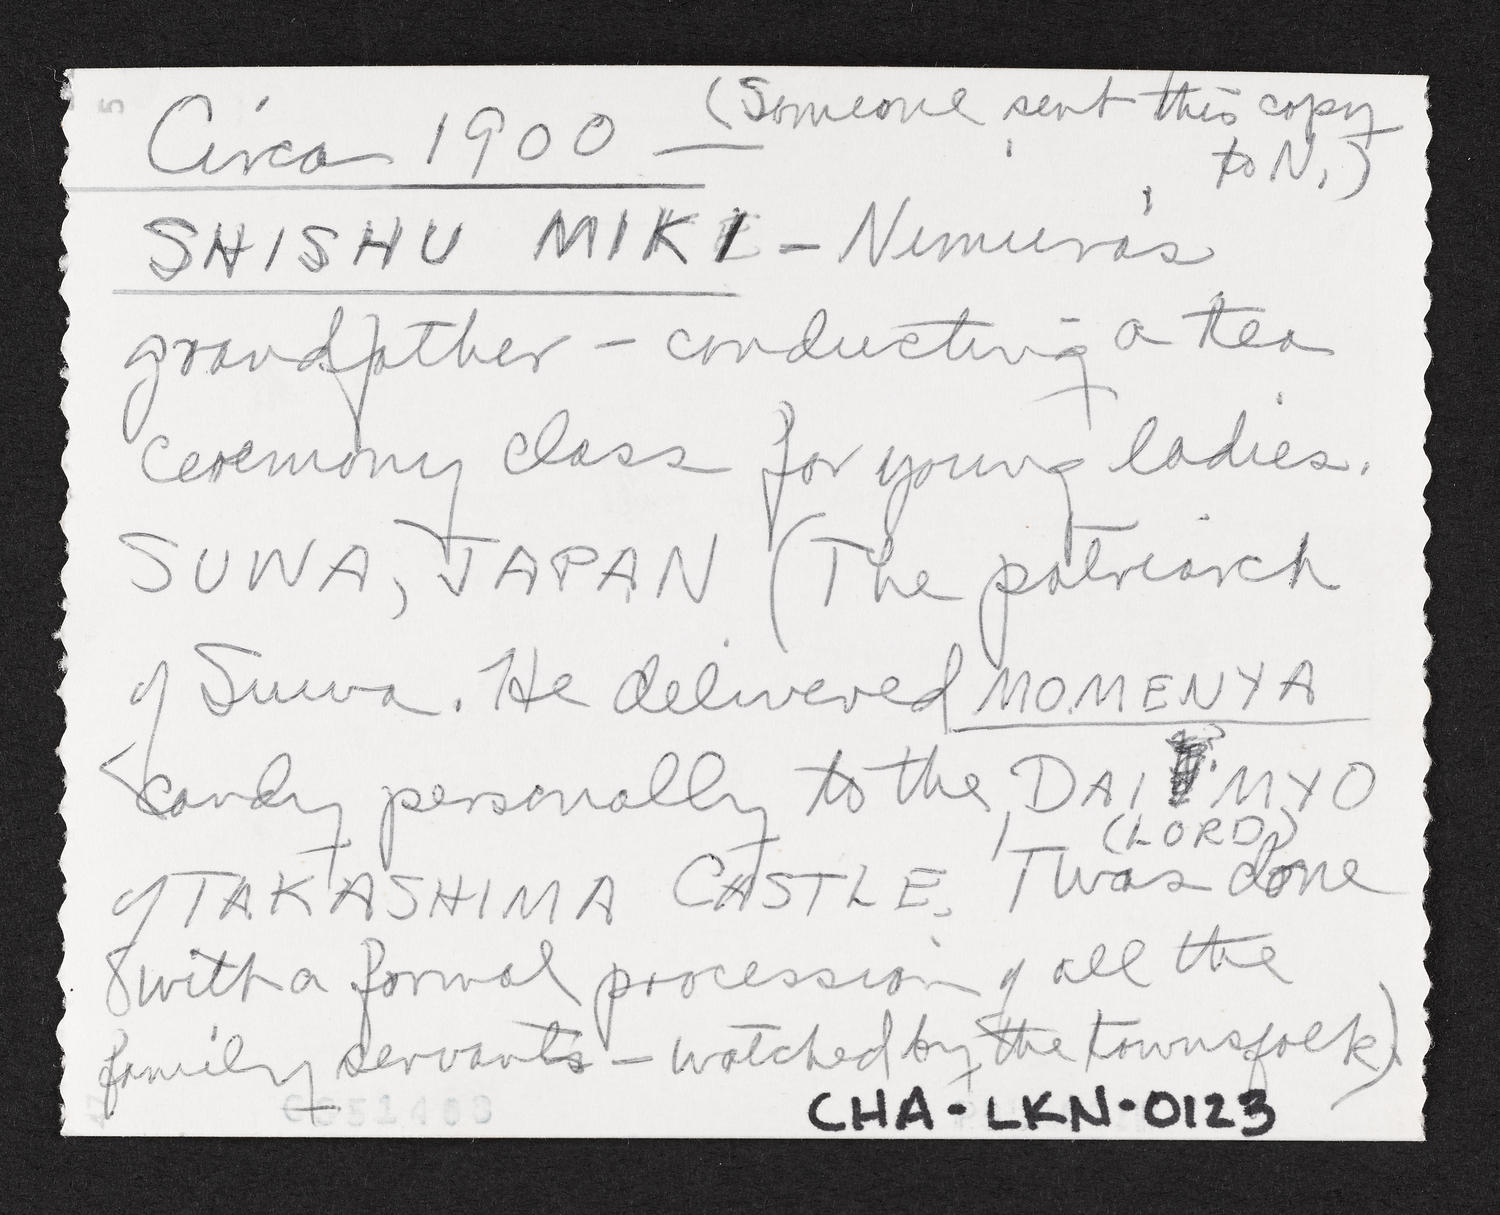 Circa 1900 — (Someone sent this copy
to N.)
SHISHU MIKI - Nimura's
grandfather - conducting a tea
ceremony class for young ladies.
SUWA, JAPAN (The patriarch
of Suwa. He delivered MOMENYA
candy personally to the DAI MYO
(LORD)
of TAKASHIMA CASTLE. 'Twas done
with a formal procession of all the
family servants - watched by the townsfolk)
CHA-LKN-0123